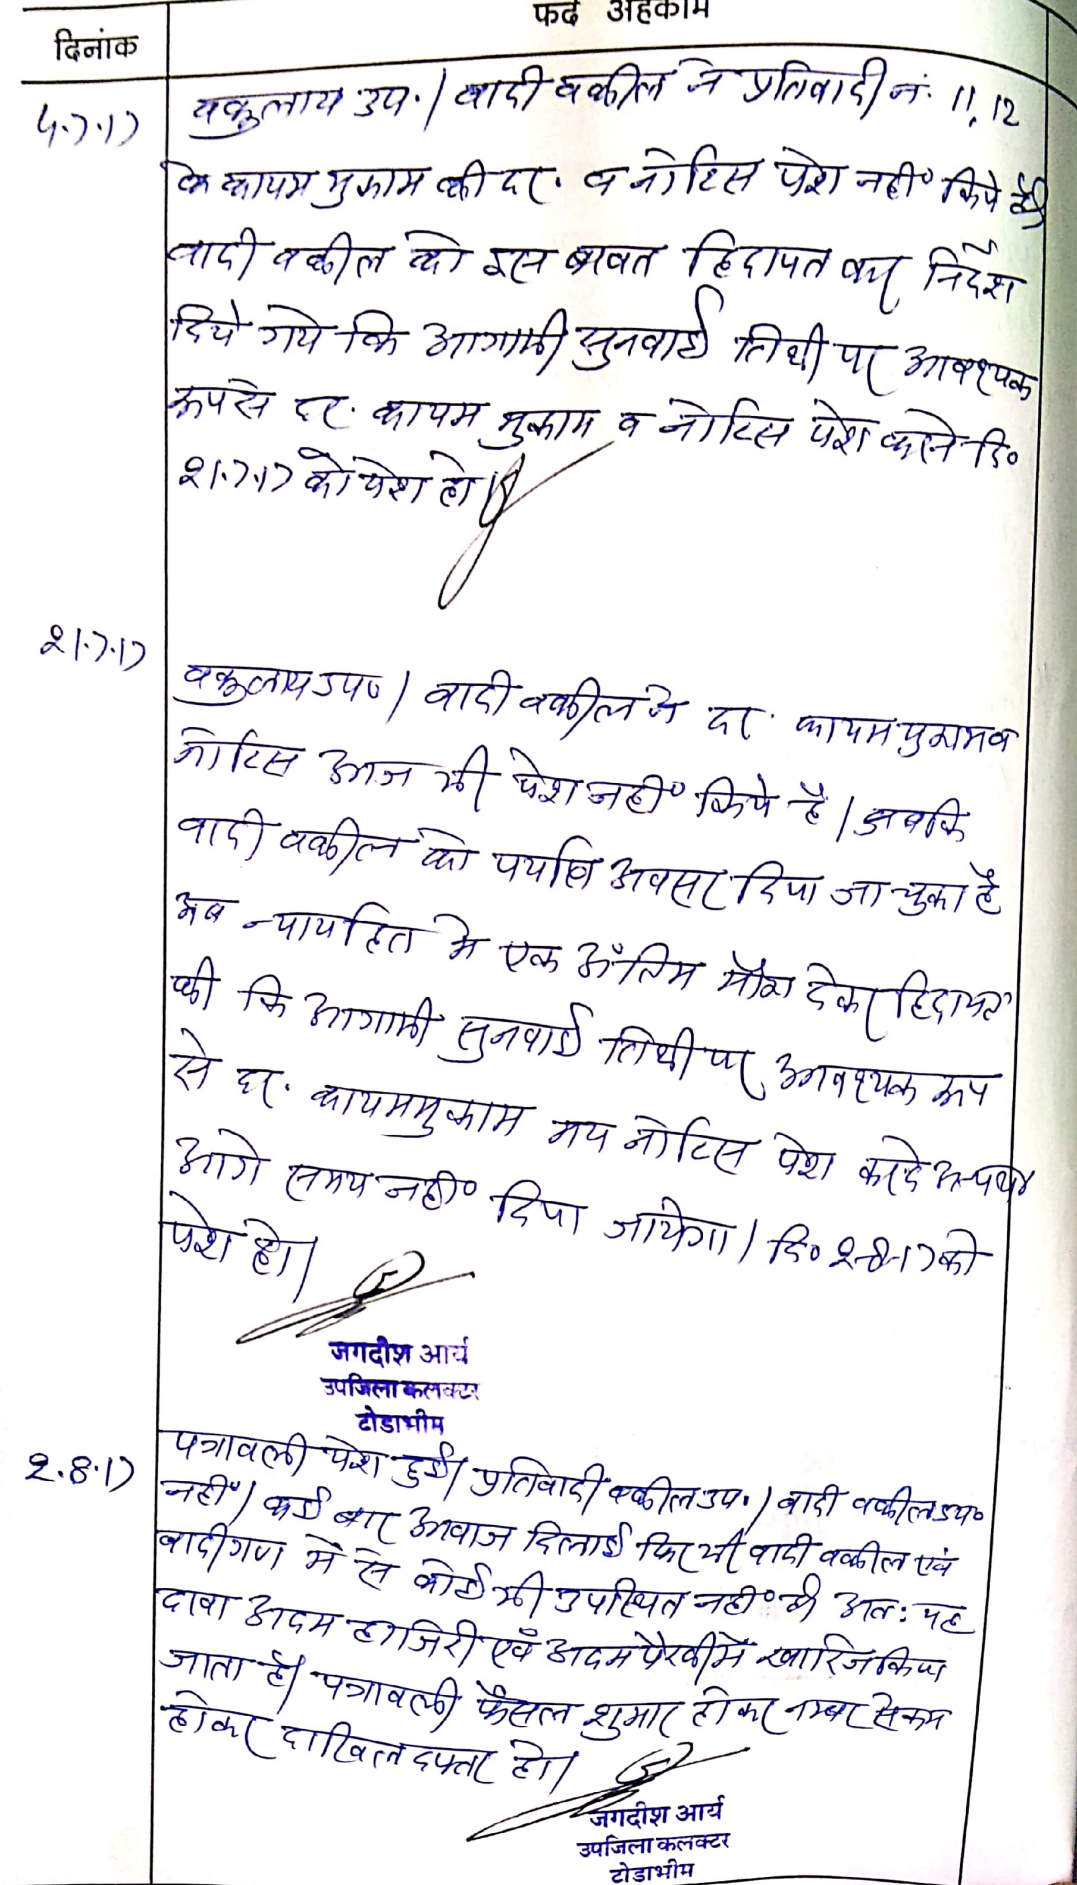 फर्द अहकाम
दिनांक
4.7.17
वकुलाय उप. / वादी वकील ने प्रतिवादी नं. 11, 12
के कायम मुकाम की दर. व नोटिस पेश नही० किये है।
वादी वकील को इस बाबत हिदायत कर निर्देश
दिये गये कि आगामी सुनवाई तिथी पर आवश्यक
रूप से दर. कायम मुकाम व नोटिस पेश करने दि०
21.7.17 को पेश हो।
21.7.17
वकुलाय उप० / वादी वकील ने दर. कायम मुकाम व
नोटिस आज भी पेश नही० किये है / जबकि
वादी वकील को पर्याप्त अवसर दिया जा चुका है
अब न्यायहित मे एक अंतिम मौका देकर हिदायत
की कि आगामी सुनवाई तिथी पर आवश्यक रूप
से दर. कायममुकाम मय नोटिस पेश करदे अन्यथा
आगे समय नही० दिया जायेगा / दि० 2-8-17 को
पेश हो।
जगदीश आर्य
उपजिला कलक्टर
टोडाभीम
2.8.17
पत्रावली पेश हुई। प्रतिवादी वकील उप. / वादी वकील उप०
नही०/ कई बार आवाज दिलाई फिर भी वादी वकील एवं
वादीगण में से कोई भी उपस्थित नही० है अत: यह
दावा अदम हाजिरी एवं अदम पैरवी में खारिज किया
जाता है। पत्रावली फैसल शुमार होकर नम्बर से कम
होकर दाखिल दफ्तर हो।
जगदीश आर्य
उपजिला कलक्टर
टोडाभीम